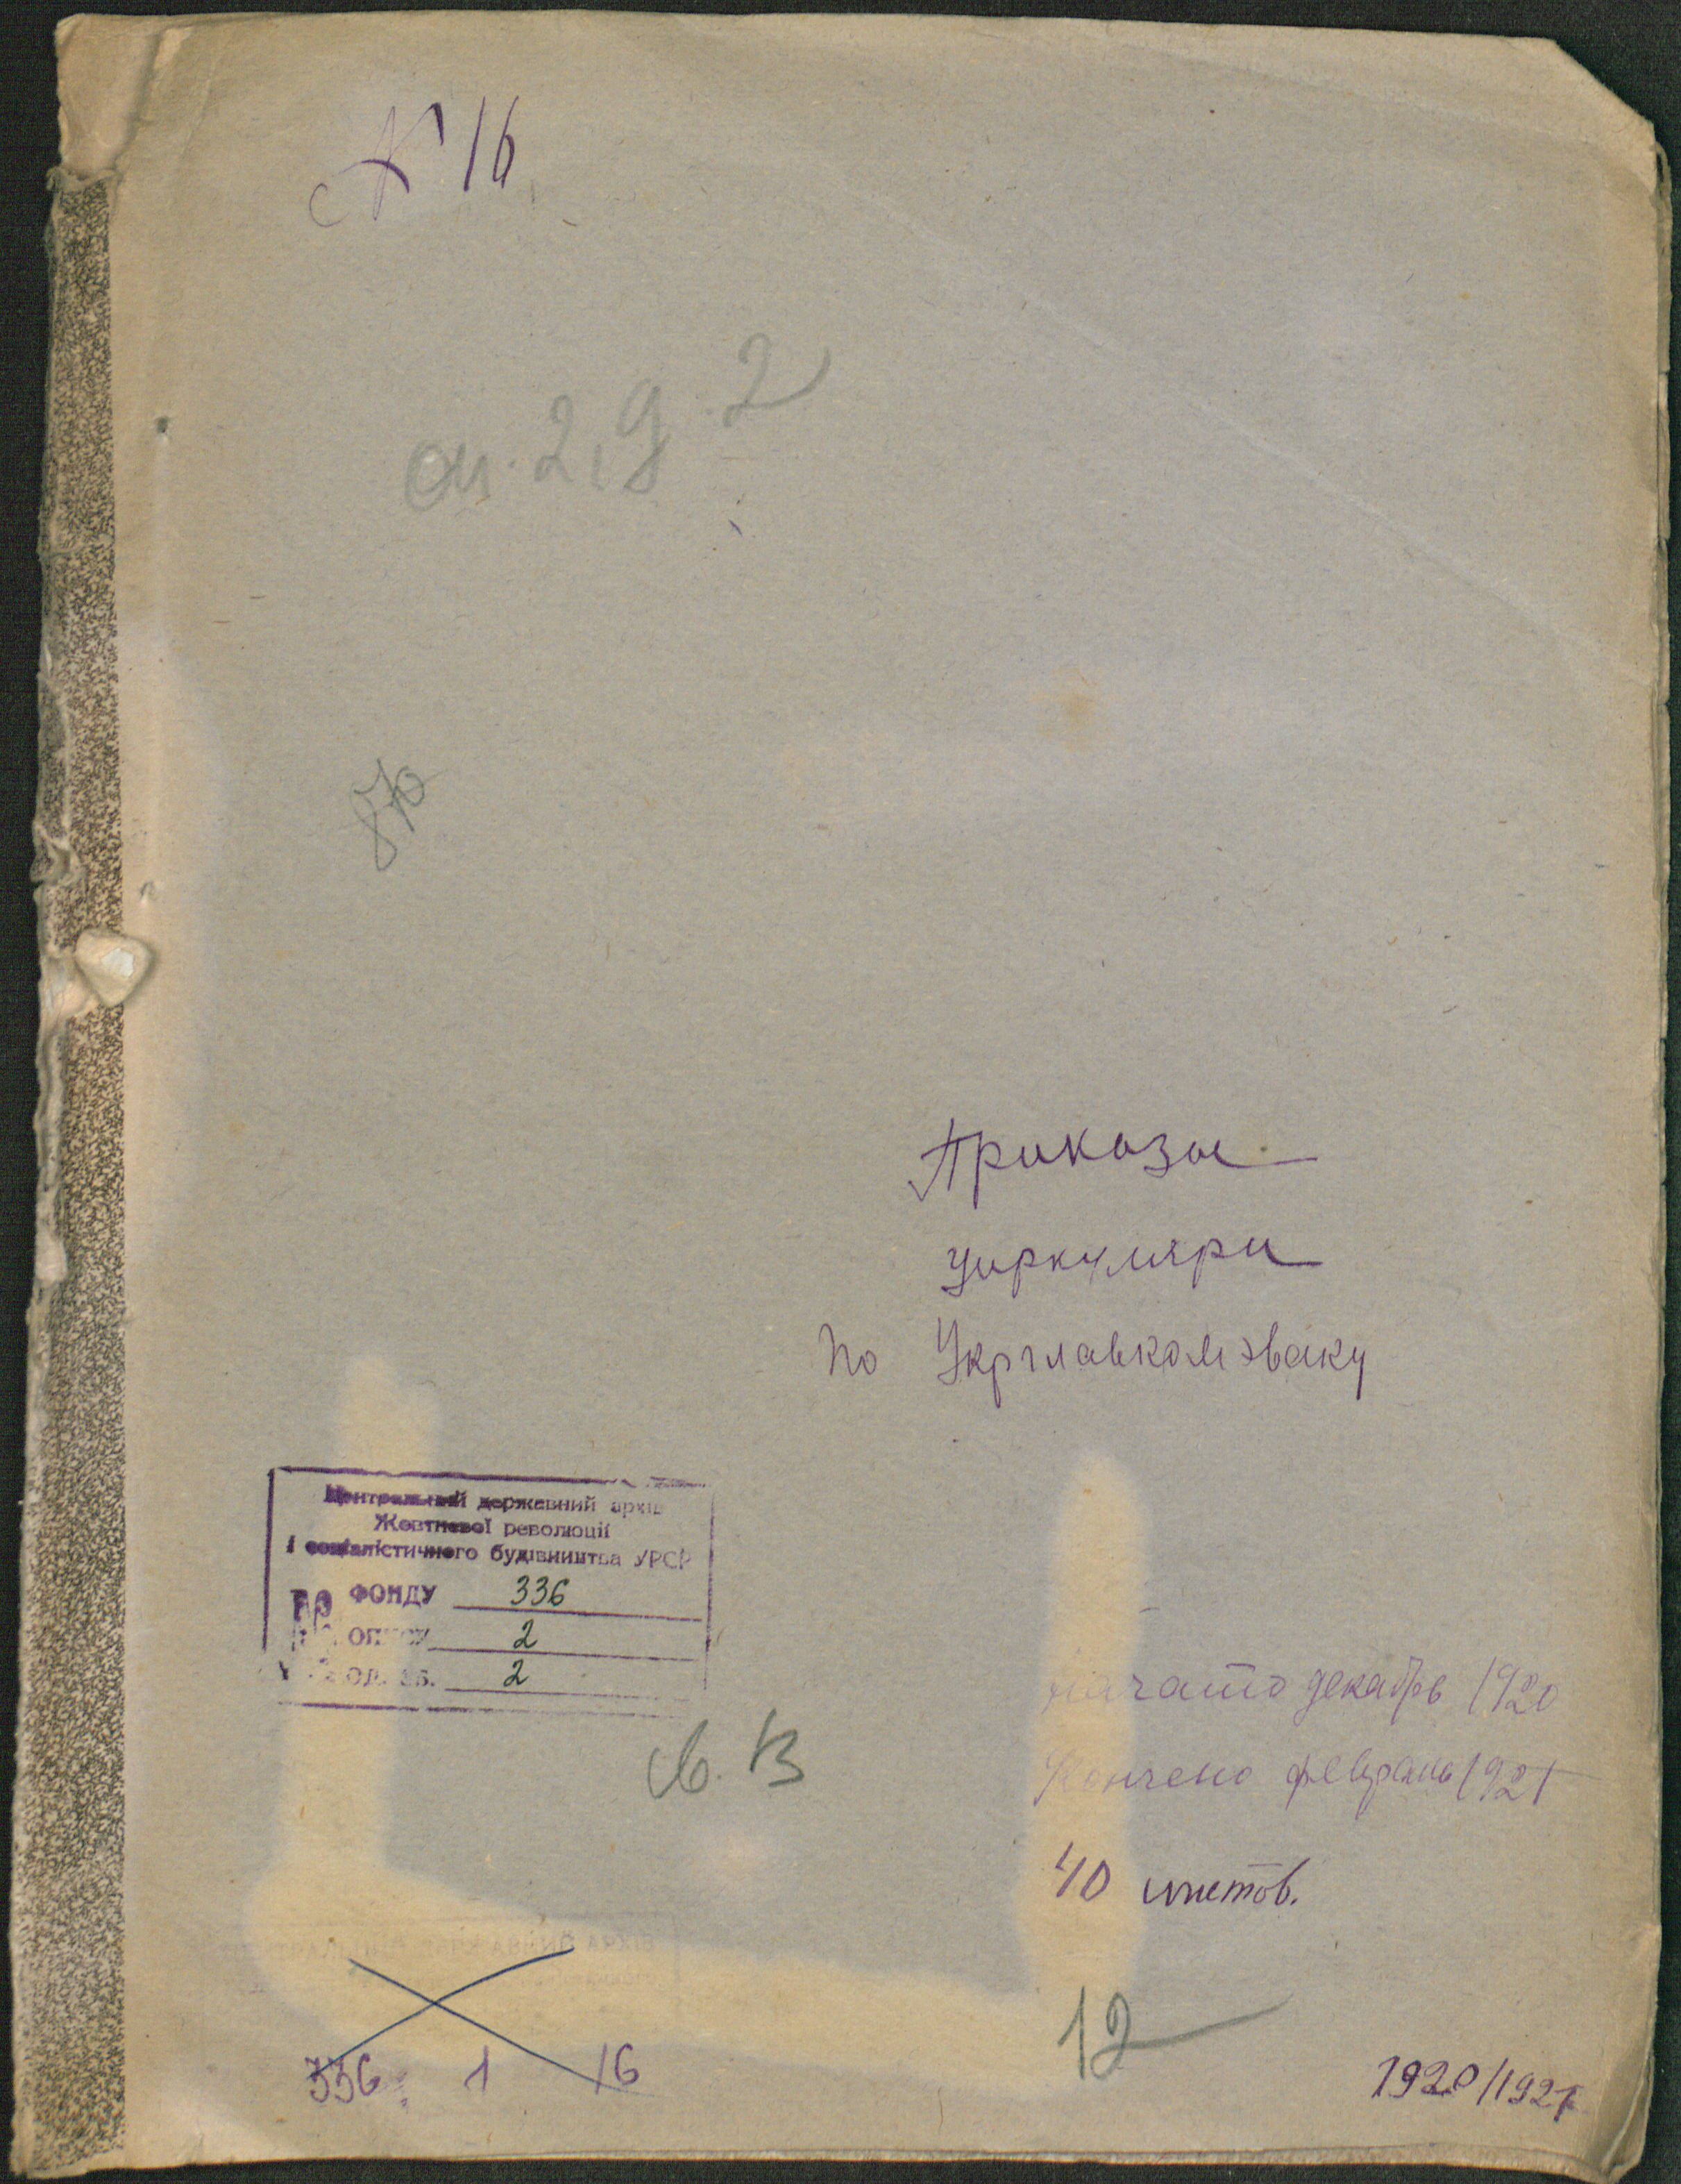 № 16
оп. 2, д. 2
870
Приказы
циркуляри
по Укрглавкомэваку
Центральний державний архів
Жовтневої революції
і соціалістичного будівництва УРСР
№ ФОНДУ 336
№ ОПИСУ 2
№ ОД. ЗБ. 2
Начато декабрь 1920
Кончено февраль 1921
св. 13
40 листов.
12
336 1 16
1920/1921